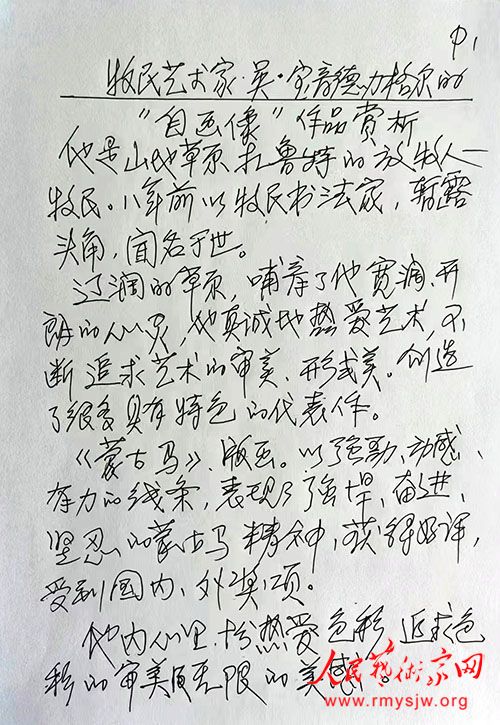 P1
牧民艺术家·吴·宝音德力格尔的
“自画像”作品赏析
他是山地草原扎鲁特的放牧人
牧民。八年前以牧民书法家,崭露
头角,闻名于世。
辽阔的草原,哺养了他宽阔、开
朗的心灵,他真诚地热爱艺术,不
断追求艺术的审美、形式美。创造
了很多具有特色的代表作。
《蒙古马》、版画。以强劲、动感、
有力的线条,表现了强悍,奋进、
坚忍的蒙古马精神,获得好评,
受到国内、外奖项。
他内心里热爱色彩 追求色
彩的审美 无限的美感。
人民藝術家网
www.rmysjw.org